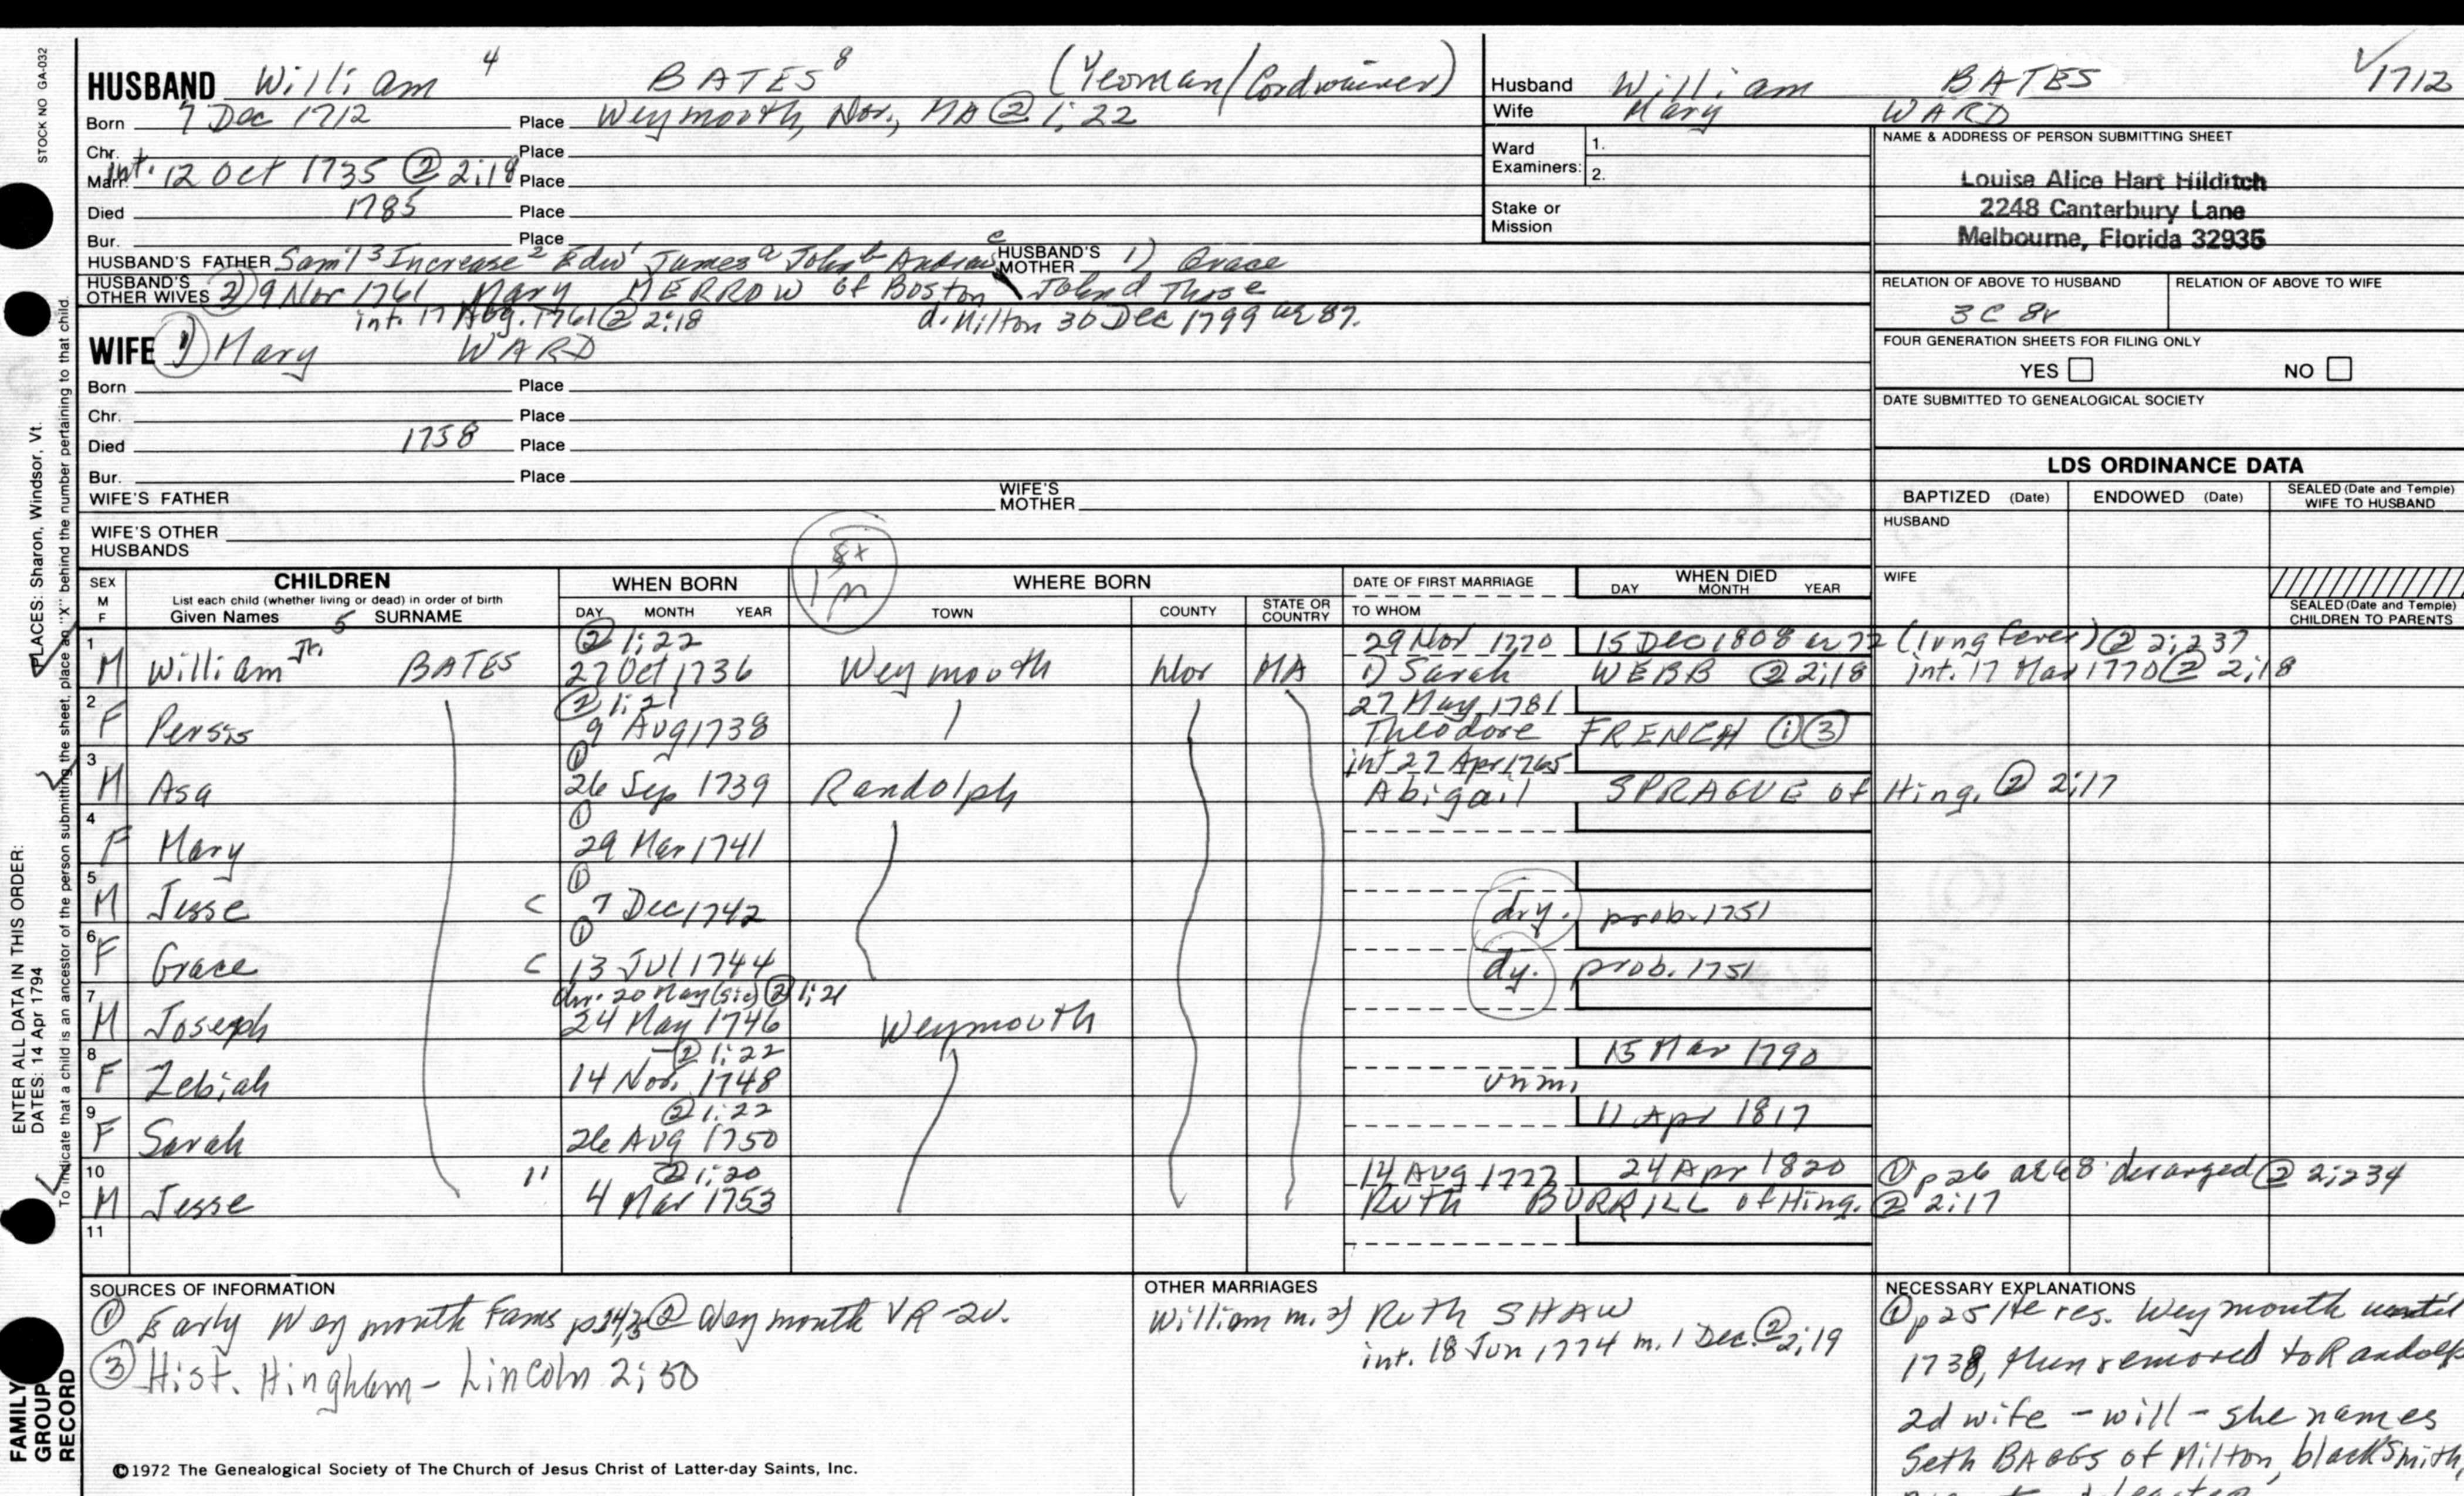 STOCK NO GA-032
HUSBAND William 4 BATES 8 (Yeoman/Cordwainer)
Born 7 Dec 1712 Place Weymouth, Nor., MA @ 1;22
Chr. Place
Marr. int. 12 Oct 1735 ② 2;18 Place
Died 1785 Place
Bur. Place
HUSBAND'S FATHER Sam'l 3 Increase 2 Edw 1 James a John b Andrew c HUSBAND'S MOTHER 1) Grace
HUSBAND'S OTHER WIVES 2) 9 Nov 1761 Mary MERROW of Boston John d Thos e
int. 17 Aug. 1761 ② 2;18 d. Milton 30 Dec 1799 ae 87.
WIFE 1) Mary WARD
Born Place
Chr. Place
Died 1758 Place
Bur. Place
WIFE'S FATHER WIFE'S MOTHER
WIFE'S OTHER HUSBANDS
Husband William BATES ✓1712
Wife Mary WARD
Ward Examiners: 1.
2.
Stake or Mission
NAME & ADDRESS OF PERSON SUBMITTING SHEET
Louise Alice Hart Hilditch
2248 Canterbury Lane
Melbourne, Florida 32935
RELATION OF ABOVE TO HUSBAND RELATION OF ABOVE TO WIFE
3C 8r
FOUR GENERATION SHEETS FOR FILING ONLY
YES NO
DATE SUBMITTED TO GENEALOGICAL SOCIETY
LDS ORDINANCE DATA
BAPTIZED (Date) ENDOWED (Date) SEALED (Date and Temple) WIFE TO HUSBAND
HUSBAND
WIFE
SEALED (Date and Temple) CHILDREN TO PARENTS
SEX M F CHILDREN WHEN BORN WHERE BORN DATE OF FIRST MARRIAGE WHEN DIED
List each child (whether living or dead) in order of birth
Given Names 5 SURNAME DAY MONTH YEAR TOWN COUNTY STATE OR COUNTRY TO WHOM DAY MONTH YEAR
1 ② 1;22 29 Nov 1770 15 Dec 1808 ae 72 (lung fever) @ 2;237
M William Jr. BATES 27 Oct 1736 Weymouth Nor MA 1) Sarah WEBB ② 2;18 int. 17 Mar 1770 ② 2;18
2 ② 1;21 27 May 1781
F Persis 9 Aug 1738 Theodore FRENCH ① ③
3 ① int 27 Apr 1765
M Asa 26 Sep 1739 Randolph Abigail SPRAGUE of Hing. ② 2;17
4 ①
F Mary 29 Mar 1741
5 ①
M Jesse C 7 Dec 1742 dry. prob. 1751
6 ①
F Grace C 13 Jul 1744 dy. prob. 1751
7 chr. 20 May (sic) ② 1;21
M Joseph 24 May 1746 Weymouth
8 ② 1;22 15 Mar 1790
F Zebiah 14 Nov. 1748 unm.
9 ② 1;22 11 Apr 1817
F Sarah 26 Aug 1750
10 " ② 1;20 14 Aug 1777 24 Apr 1820 ① p 26 ae 68 deranged ② 2;234
M Jesse 4 Mar 1753 Ruth BURRILL of Hing. ② 2;17
11
SOURCES OF INFORMATION
① Early Weymouth Fams ② Weymouth VR - 2v.
③ Hist. Hingham - Lincoln 2;50
OTHER MARRIAGES
William m. 2) Ruth SHAW
int. 18 Jun 1774 m. 1 Dec. ② 2;19
NECESSARY EXPLANATIONS
① p 25 He res. Weymouth until
1738, then removed to Randolph
2d wife - will - she names
Seth BAGGS of Milton, blacksmith,
©1972 The Genealogical Society of The Church of Jesus Christ of Latter-day Saints, Inc.
PLACES: Sharon, Windsor, Vt.
ENTER ALL DATA IN THIS ORDER:
DATES: 14 Apr 1794
To indicate that a child is an ancestor of the person submitting the sheet, place an "X" behind the number pertaining to that child.
FAMILY GROUP RECORD